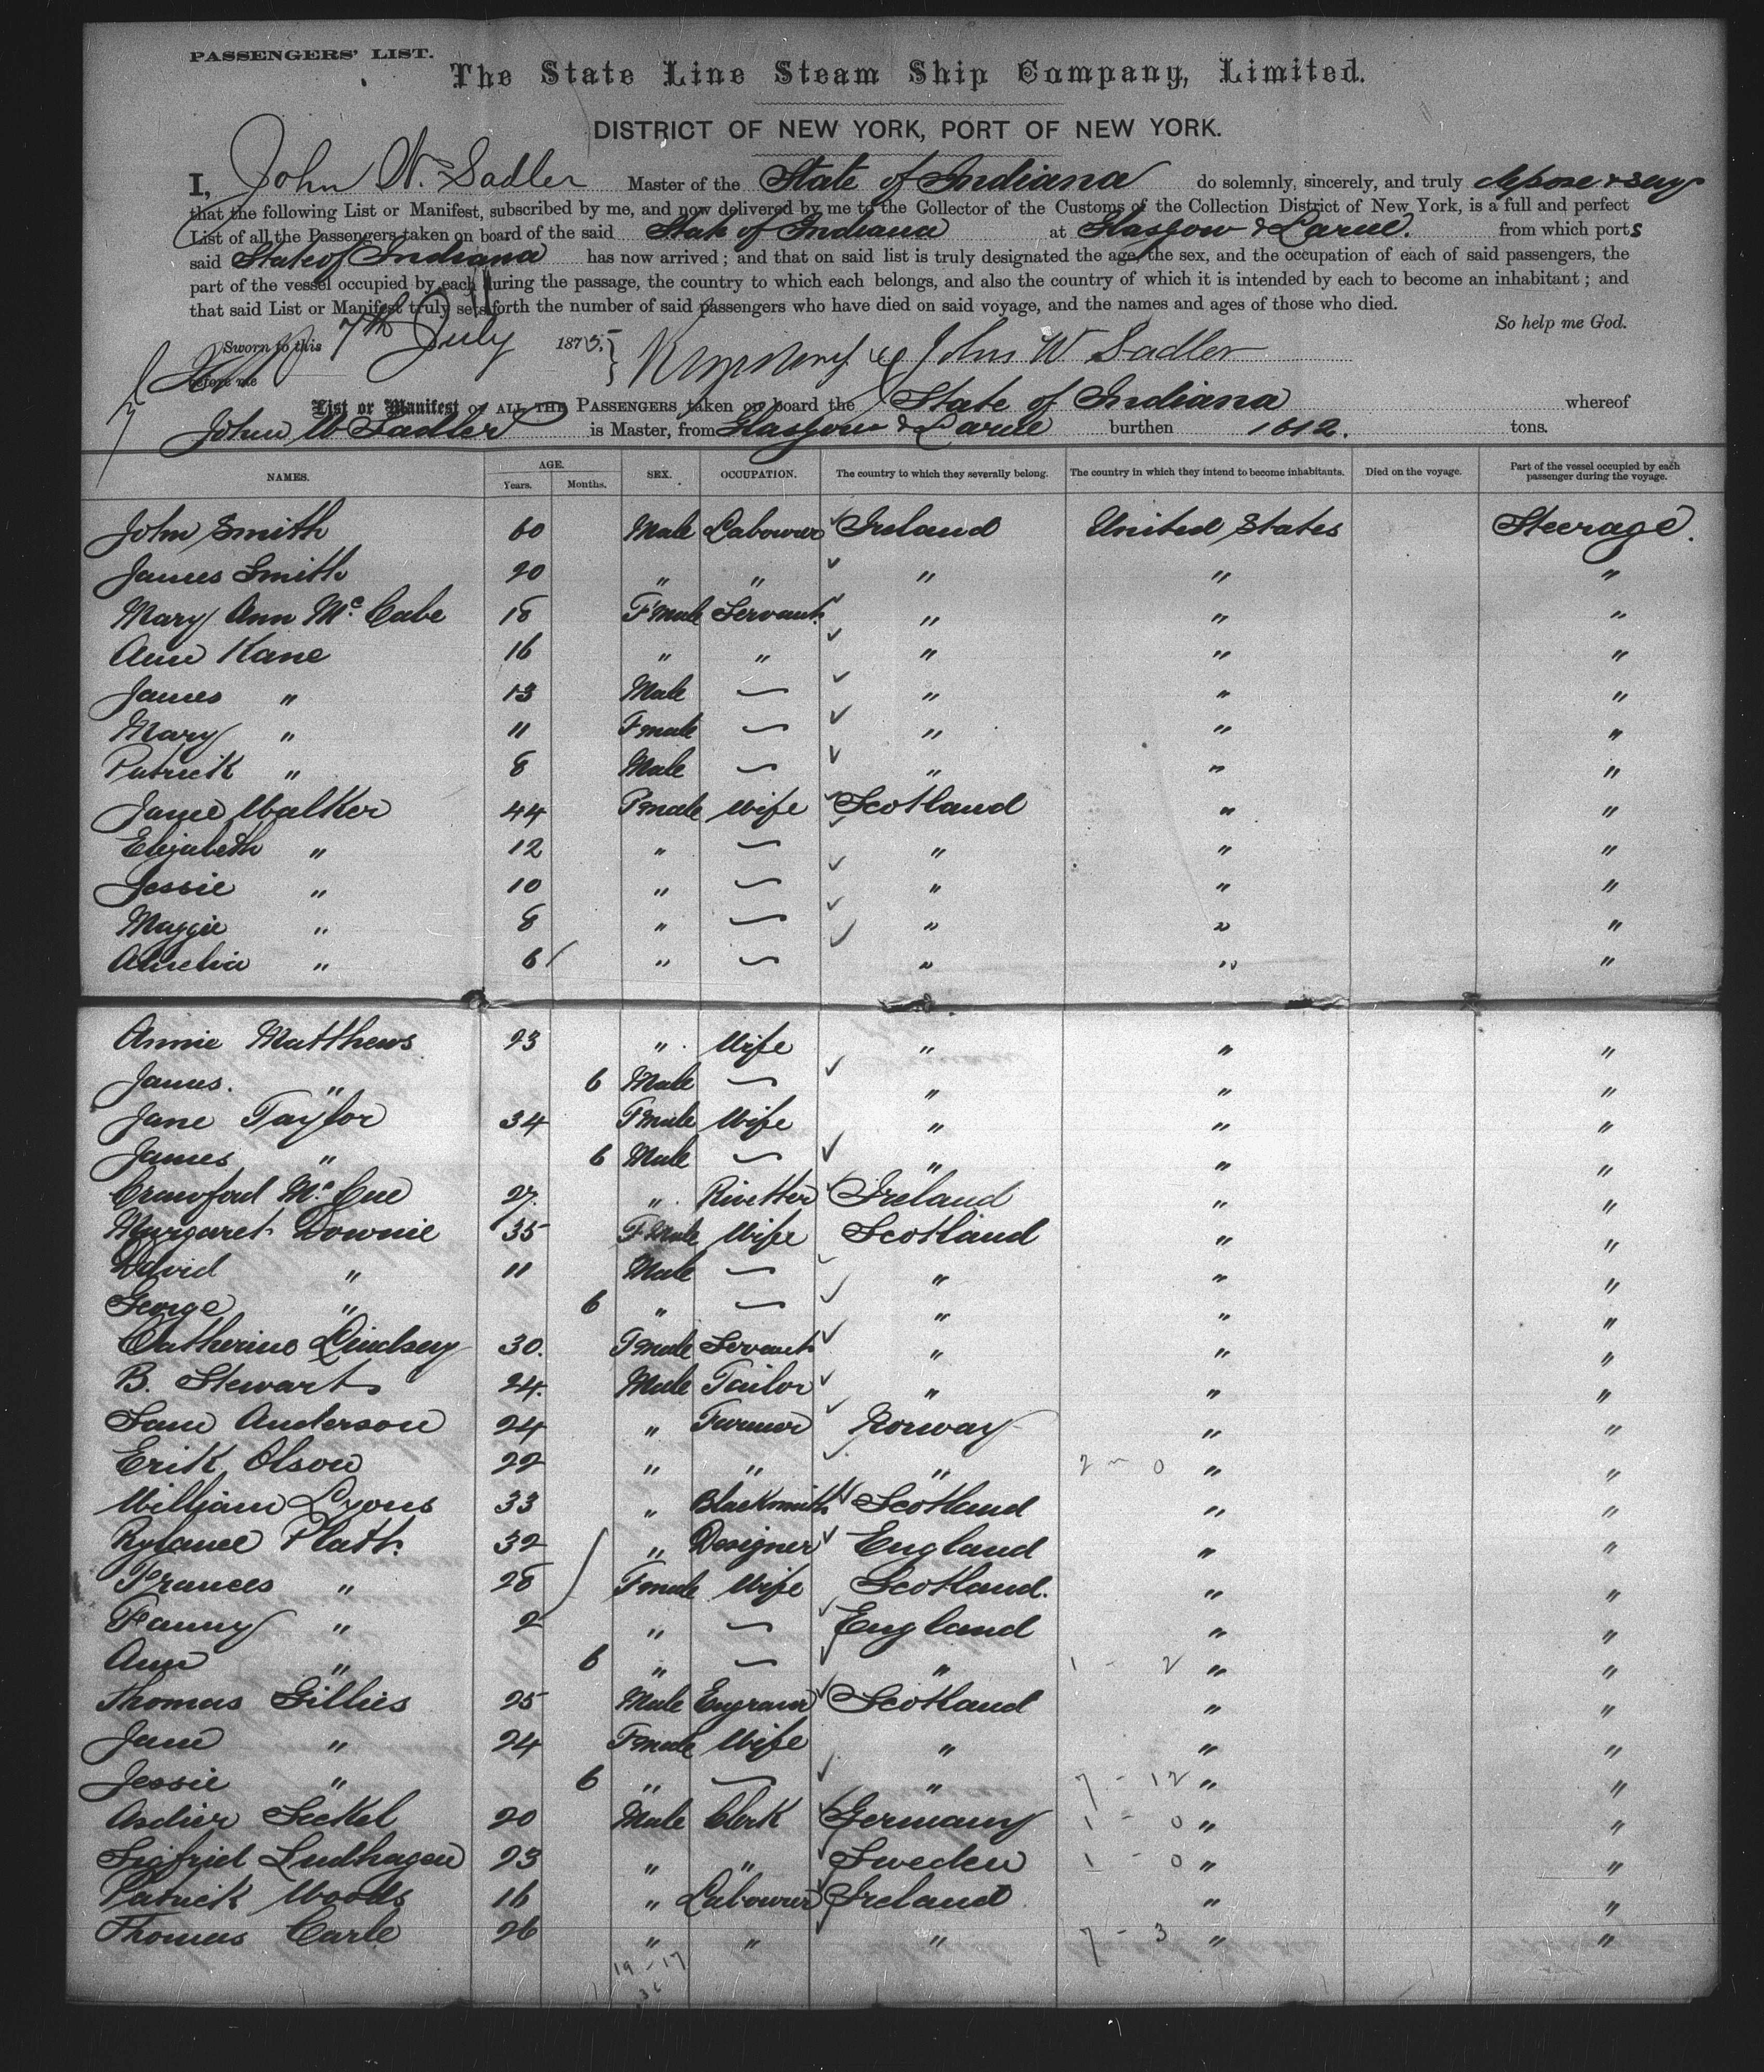 PASSENGERS' LIST.
The State Line Steam Ship Company, Limited.
DISTRICT OF NEW YORK, PORT OF NEW YORK.
I, John W. Sadler Master of the State of Indiana do solemnly, sincerely, and truly depose & say
that the following List or Manifest, subscribed by me, and now delivered by me to the Collector of the Customs of the Collection District of New York, is a full and perfect
List of all the Passengers taken on board of the said State of Indiana at Glasgow & Larne. from which ports
said State of Indiana has now arrived; and that on said list is truly designated the age, the sex, and the occupation of each of said passengers, the
part of the vessel occupied by each during the passage, the country to which each belongs, and also the country of which it is intended by each to become an inhabitant; and
that said List or Manifest truly sets forth the number of said passengers who have died on said voyage, and the names and ages of those who died.
So help me God.
Sworn to this 7th July 1875, John W Sadler
before me
List or Manifest OF ALL THE PASSENGERS taken on board the State of Indiana whereof
John W Sadler is Master, from Glasgow & Larne burthen 1612. tons.
NAMES. AGE. Years. Months. SEX. OCCUPATION. The country to which they severally belong. The country in which they intend to become inhabitants. Died on the voyage. Part of the vessel occupied by each passenger during the voyage.
John Smith 60 Male Labourer Ireland United States Steerage.
James Smith 20 " " " " "
Mary Ann Mc Cabe 18 Fmale Servant " " "
Ann Kane 16 " " " " "
James " 13 Male — " " "
Mary " 11 Fmale — " " "
Patrick " 8 Male — " " "
Jane Walker 44 Fmale Wife Scotland " "
Elizabeth " 12 " — " " "
Jessie " 10 " — " " "
Maggie " 8 " — " " "
Amelia " 6 " — " " "
Annie Matthews 23 " Wife " " "
James. " 6 Male — " " "
Jane Taylor 34 Fmale Wife " " "
James " 6 Male — " " "
Crawford Mc Cue 27. " Rivetter Ireland " "
Margaret Downie 35 FMale Wife Scotland " "
David " 11 Male — " " "
George " 6 " — " " "
Catherine Lindsay 30. Fmale Servant " " "
B. Stewart 24. Male Tailor " " "
Sam Anderson 24 " Farmer Norway " "
Erik Olson 22 " " " 2 - 0 " "
William Lyons 33 " Blacksmith Scotland " "
Rylance Platt. 32 " Designer England " "
Frances " 28 Fmale Wife Scotland. " "
Fanny " 2 " — England " "
Ann " 6 " — " 1 - 2 " "
Thomas Gillies 25 Male Engraver Scotland " "
Jane " 24 Fmale Wife " " "
Jessie " 6 " — " 7 - 12 " "
Seckel 20 Male Clerk Germany 1 - 0 " "
Sigfried Ludhagen 23 " " Sweden 1 - 0 " "
Patrick Woods 16 " Labourer Ireland " "
Thomas Carle 26 " " " 7 - 3 " "
19 - 17
36